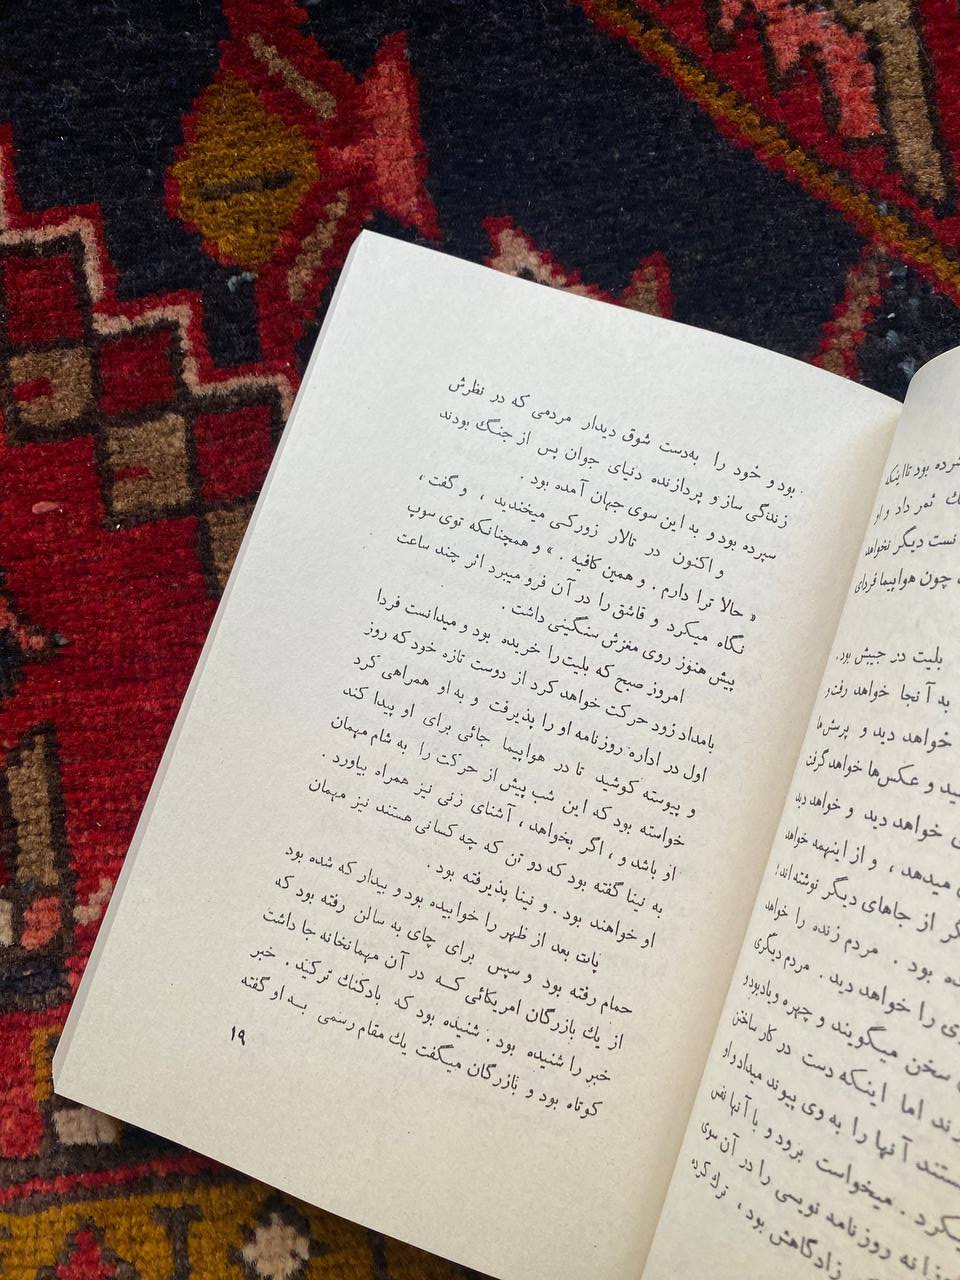 بود و خود را به‌دست شوق دیدار مردمی که در نظرش
زندگی ساز و پردازنده دنیای جوان پس از جنگ بودند
سپرده بود و به این سوی جهان آمده بود .
و اکنون در تالار زورکی میخندید ، و گفت ،
« حالا ترا دارم . و همین کافیه . » و همچنانکه توی سوپ
نگاه میکرد و قاشق را در آن فرو میبرد اثر چند ساعت
پیش هنوز روی مغزش سنگینی داشت .
امروز صبح که بلیت را خریده بود و میدانست فردا
بامداد زود حرکت خواهد کرد از دوست تازه خود که روز
اول در اداره روزنامه او را پذیرفت و به او همراهی کرد
و پیوسته کوشید تا در هواپیما جائی برای او پیدا کند
خواسته بود که این شب پیش از حرکت را به شام مهمان
او باشد و ، اگر بخواهد ، آشنای زنی نیز همراه بیاورد .
به نینا گفته بود که دو تن که چه کسانی هستند نیز مهمان
او خواهند بود . و نینا پذیرفته بود .
پات بعد از ظهر را خوابیده بود و بیدار که شده بود
حمام رفته بود و سپس برای چای به سالن رفته بود که
از یك بازرگان امریکائی کسه در آن مهمانخانه جا داشت
خبر را شنیده بود . شنیده بود که بادکنك ترکید . خبر
کوتاه بود و بازرگان میگفت یك مقام رسمی بسه او گفته
۱۹
بود تا اینکه
ثمر داد و او
دیگر نخواهد
چون هواپیما فردای
بلیت در جیبش بود .
به آنجا خواهد رفت و
خواهد دید و پرسش‌ها
و عکس‌ها خواهد گرفت
خواهد دید و خواهد دید
میدهد ، و از اینهمه خواهد
از جاهای دیگر نوشته‌اند !
بود . مردم زنده را خواهد
را خواهد دید . مردم دیگری
سخن میگویند و چهره و یادبود و
اما اینکه دست در کار ساختن
آنها را به وی پیوند میداد و او
میخواست برود و با آنها نفس
روزنامه نویسی را در آن سوی
زادگاهش بود ، ترك کرد